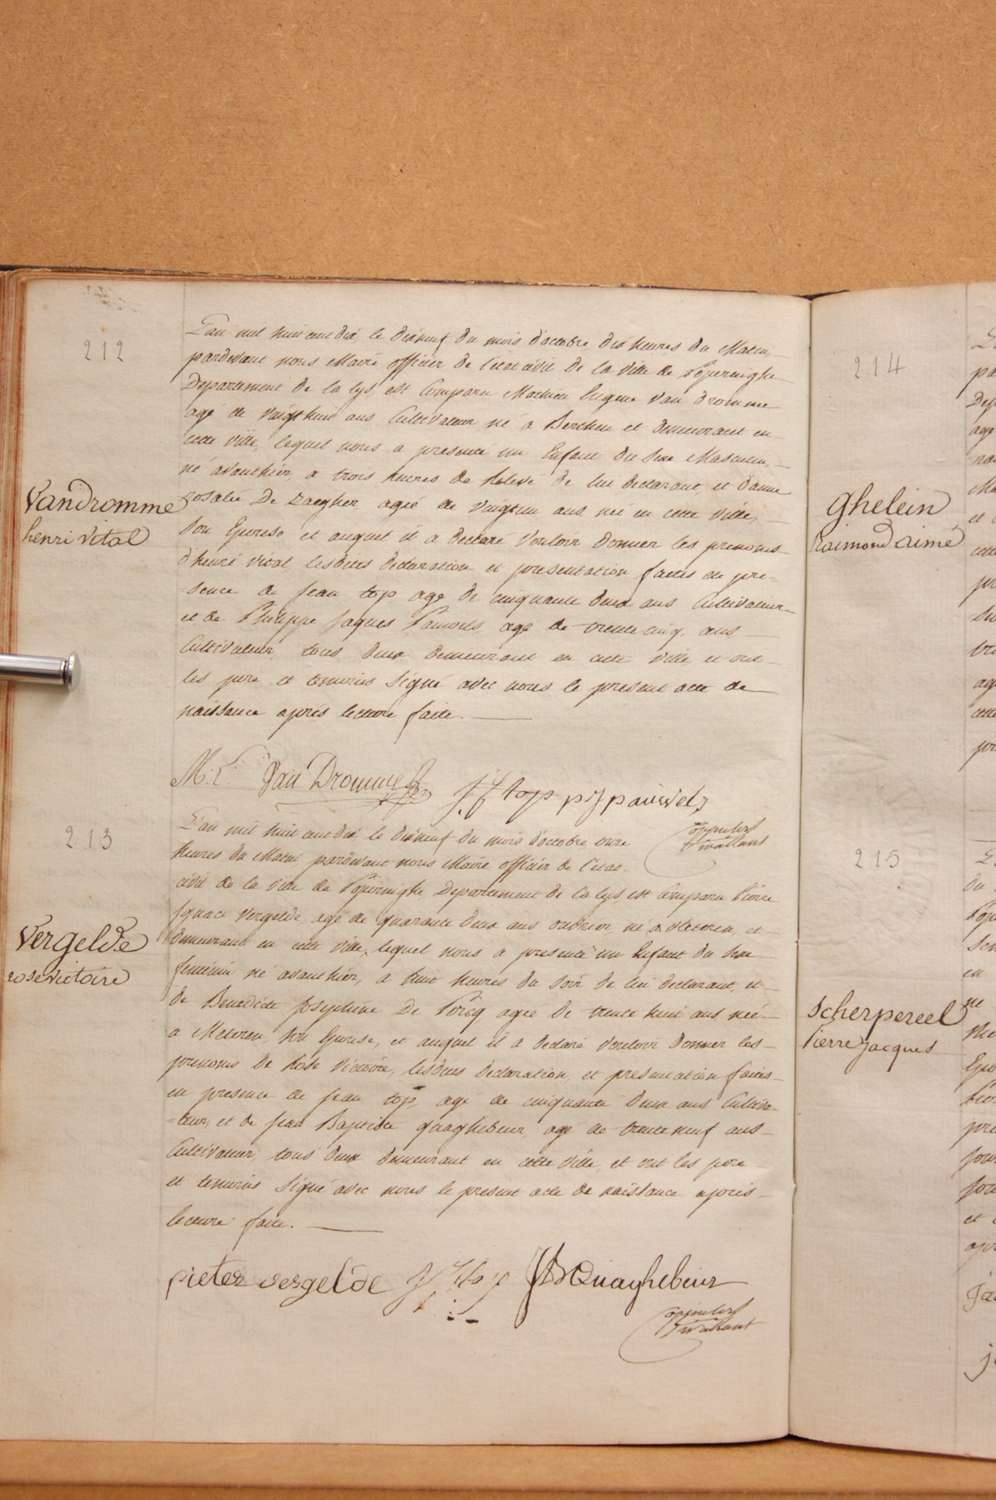 212
Vandromme
henri Vital
L'an mil huit cent dix le dixneuf du mois d'octobre dix heures du Matin
pardevant nous Maire officier de l'état civil de la Ville de Poperinghe
Departement de la Lys est Comparu Mathieu Eugene Van Dromme
agé de Vingt huit ans Cultivateur né à Berthen et demeurant en
cette Ville, lequel nous a presenté un Enfant du Sexe Masculin,
né avanthier a trois heures de Relevé de lui declarant et d'anne
rosalie De Zaegher agée de Vingtun ans née en cette Ville,
Son Epouse et auquel il a declaré Vouloir Donner les prenoms
d'henri Vital lesdites declaration et presentation faites en pre-
sence de Jean top agé de cinquante deux ans Cultivateur
et de Philippe Jaques Pauwels, agé de trente cinq ans
Cultivateur, tous deux demeurant en cette Ville et ont
les pere et temoins Signé avec nous le present acte de
naissance après lecture faite.
M: E: Van Dromme J f top p j pauwels
213
Vergelde
rose victoire
L'an mil huit cent dix le dixneuf du mois d'octobre onze
heures du Matin pardevant nous Maire officier de l'etat
civil de la Ville de Poperinghe Departement de la Lys est Comparu Pierre
Ignace Vergelde, agé de quarante deux ans ouvrier né a et
demeurant en cette Ville, lequel nous a presenté un Enfant du Sexe
feminin né avanthier, a huit heures du Soir de lui declarant, et
de Benedicte Josephine De Porcq agée de trente huit ans née
a Meteren Son Epouse, et auquel il a declaré Vouloir Donner les
prenoms de Rose Victoire, lesdites declaration et presentation faites
en presence de Jean top, agé de cinquante deux ans Cultiva-
teur, et de Jean Baptiste Quaghebeur, agé de trente neuf ans
Cultivateur tous deux demeurant en cette Ville, et ont les pere
et temoins Signé avec nous le present acte de naissance après
lecture faite.
pieter vergelde J f top J B Quaghebeur
214
ghelein
raimond aimé
215
Scherpereel
Pierre Jacques